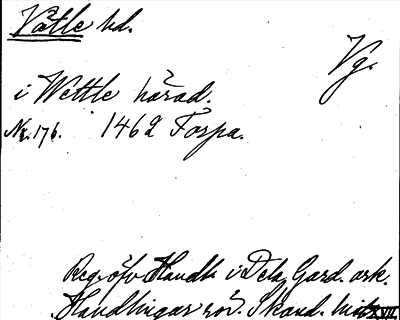 Vätle hd.
Vg.
i Wettle härad.
Nr. 176. 1462 Torpa.
Reg. öfv. Handl. i Dela Gard. ark.
Handlingar rör. Skand. hist. XVII